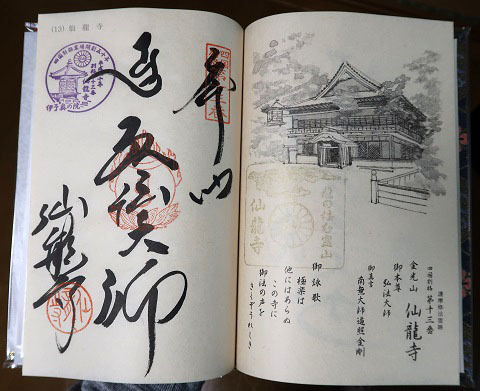 (13) 仙龍寺
伊予奥の院
仙龍寺
奉納
大師
仙龍寺
仙龍寺
四国別格 第十三番
金光山 仙龍寺
御本尊
弘法大師
御真言
南無大師遍照金剛
御詠歌
極楽は
他にはあらぬ
この寺に
御法の声を
きくぞうれしき